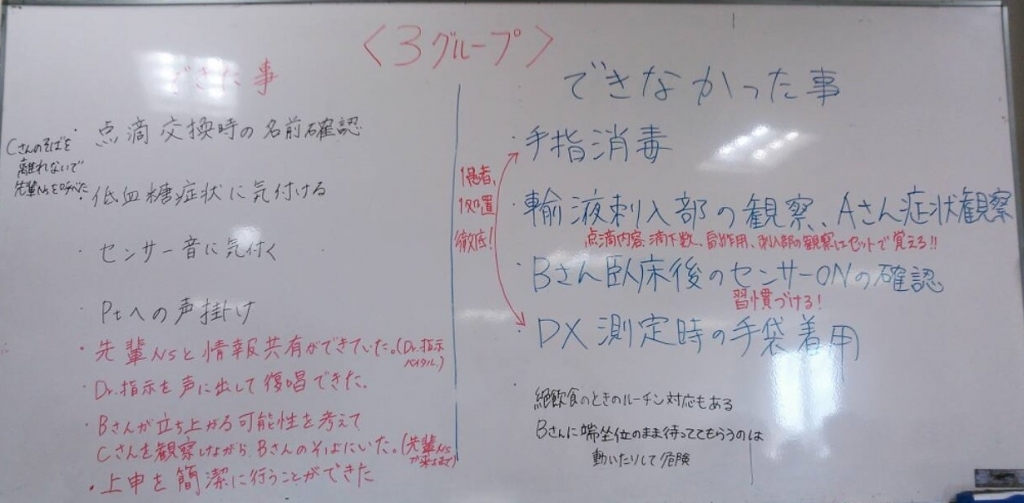 〈3グループ〉
できた事
・点滴交換時の名前確認
Cさんのそばを
離れないで
先輩Nsを呼べた
・低血糖症状に気付ける
・センサー音に気付く
・Ptへの声掛け
・先輩Nsと情報共有ができていた。(Dr.指示
バイタル.)
・Dr.指示を声に出して復唱できた。
・Bさんが立ち上がる可能性を考えて
Cさんを観察しながらBさんのそばにいた。(先輩Nsが来るまで)
・上申を簡潔に行うことができた
できなかった事
・手指消毒
1患者,
1処置
徹底!
・輸液刺入部の観察、Aさん症状観察
点滴内容、滴下数、副作用、刺入部の観察はセットで覚えろ!!
・Bさん臥床後のセンサーONの確認
習慣づける!
・DX測定時の手袋着用
絶飲食のときのルーチン対応もある
Bさんに端坐位のまま待っててもらうのは
動いたりして危険